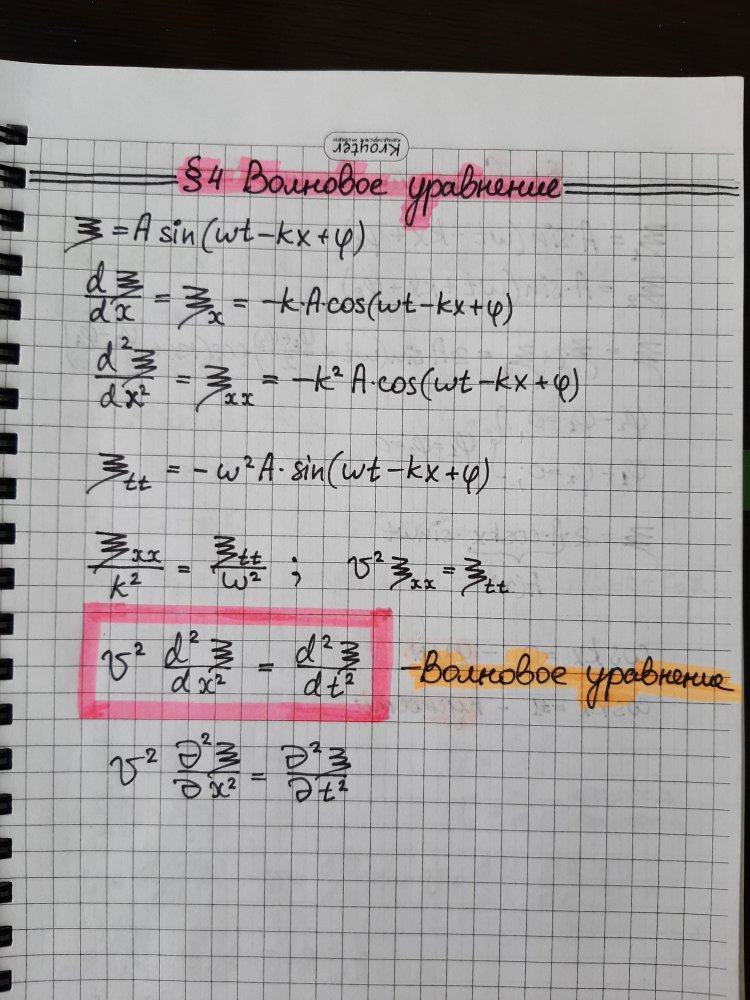 Kroyter
канцелярские товары
§4 Волновое уравнение
ξ = A sin(ωt − kx + φ)
dξ/dx = ξₓ = −k·A·cos(ωt − kx + φ)
d²ξ/dx² = ξₓₓ = −k² A·cos(ωt − kx + φ)
ξₜₜ = −ω² A·sin(ωt − kx + φ)
ξₓₓ/k² = ξₜₜ/ω² ; v² ξₓₓ = ξₜₜ
v² d²ξ/dx² = d²ξ/dt² – Волновое уравнение
v² ∂²ξ/∂x² = ∂²ξ/∂t²